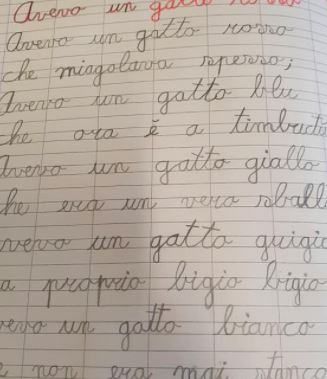 Avevo un gatto
Avevo un gatto rosso
che miagolava spesso;
Avevo un gatto blu
che ora è a
Avevo un gatto giallo
che era un vero
Avevo un gatto
a proprio bigio bigio
Avevo un gatto bianco
e non era mai stanco